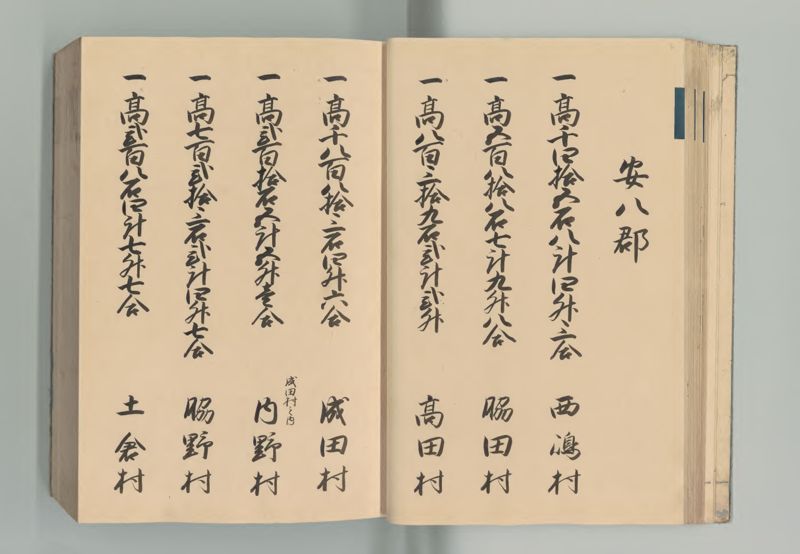 安八郡
一高千四拾五石八斗四升三合
西嶋村
一高五百八拾八石七斗九升八合
脇田村
一高八百三拾九石弐斗弐升
高田村
一高千八百八拾三石四升六合
成田村
一高弐百拾石五斗五升壱合
成田村之内
内野村
一高七百弐拾三石弐斗四升七合
脇野村
一高弐百八石四斗七升七合
土倉村